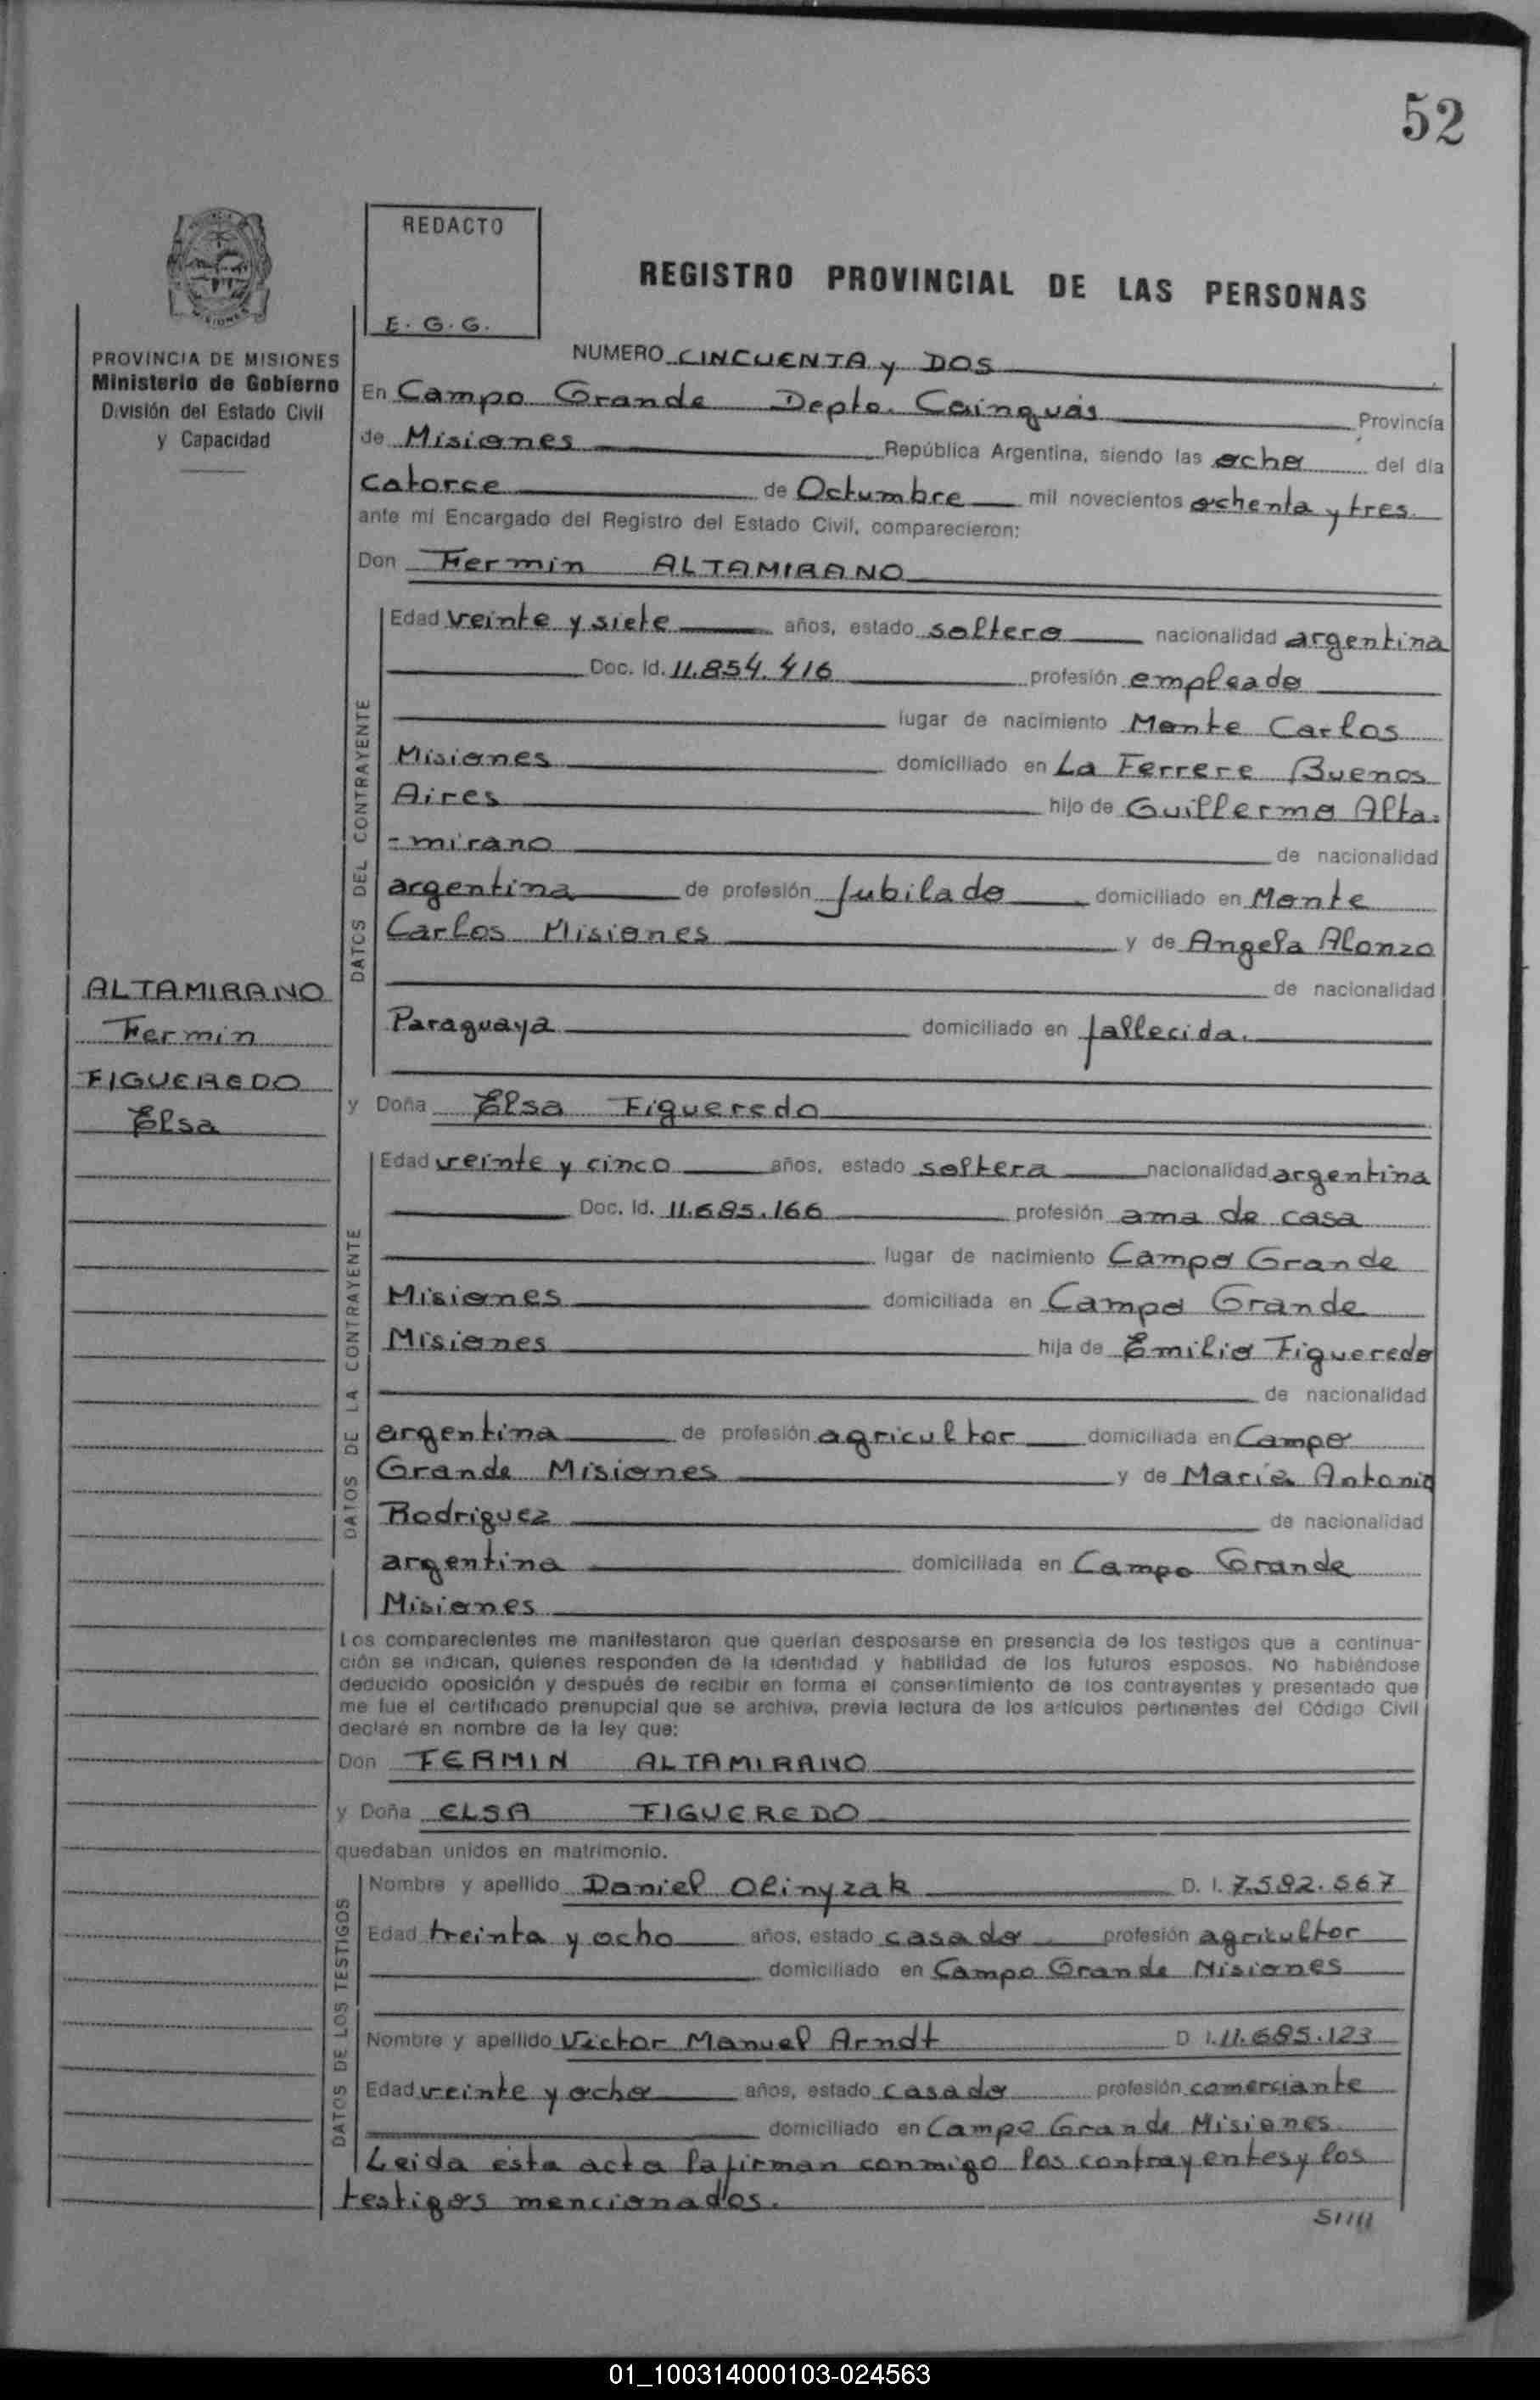 52
REDACTO
E. G. G.
REGISTRO PROVINCIAL DE LAS PERSONAS
PROVINCIA DE MISIONES
Ministerio de Gobierno
División del Estado Civil
y Capacidad
NUMERO CINCUENTA y DOS
En Campo Grande Depto. Cainguás Provincia
de Misiones República Argentina, siendo las ocho del día
catorce de Octumbre mil novecientos ochenta y tres
ante mí Encargado del Registro del Estado Civil, comparecieron:
Don Fermin ALTAMIRANO
DATOS DEL CONTRAYENTE
Edad veinte y siete años, estado soltero nacionalidad argentina
Doc. Id. 11.854.416 profesión empleado
lugar de nacimiento Monte Carlos
Misiones domiciliado en La Ferrere Buenos
Aires hijo de Guillermo Alta-
-mirano de nacionalidad
argentina de profesión Jubilado domiciliado en Monte
Carlos Misiones y de Angela Alonzo
de nacionalidad
Paraguaya domiciliado en fallecida.
ALTAMIRANO
Fermin
FIGUEREDO
Elsa
y Doña Elsa Figueredo
DATOS DE LA CONTRAYENTE
Edad veinte y cinco años, estado soltera nacionalidad argentina
Doc. Id. 11.685.166 profesión ama de casa
lugar de nacimiento Campo Grande
Misiones domiciliada en Campo Grande
Misiones hija de Emilio Figueredo
de nacionalidad
argentina de profesión agricultor domiciliada en Campo
Grande Misiones y de Maria Antonia
Rodriguez de nacionalidad
argentina domiciliada en Campo Grande
Misiones
Los comparecientes me manifestaron que querían desposarse en presencia de los testigos que a continua-
ción se indican, quienes responden de la identidad y habilidad de los futuros esposos. No habiéndose
deducido oposición y después de recibir en forma el consentimiento de los contrayentes y presentado que
me fue el certificado prenupcial que se archiva, previa lectura de los artículos pertinentes del Código Civil
declaré en nombre de la ley que:
Don FERMIN ALTAMIRANO
y Doña ELSA FIGUEREDO
quedaban unidos en matrimonio.
DATOS DE LOS TESTIGOS
Nombre y apellido Daniel Olinyzak D. I. 7.592.567
Edad treinta y ocho años, estado casado profesión agricultor
domiciliado en Campo Grande Misiones
Nombre y apellido Victor Manuel Arndt D I. 11.685.123
Edad veinte y ocho años, estado casado profesión comerciante
domiciliado en Campo Grande Misiones
Leida esta acta la firman conmigo los contrayentes y los
testigos mencionados.
01_100314000103-024563